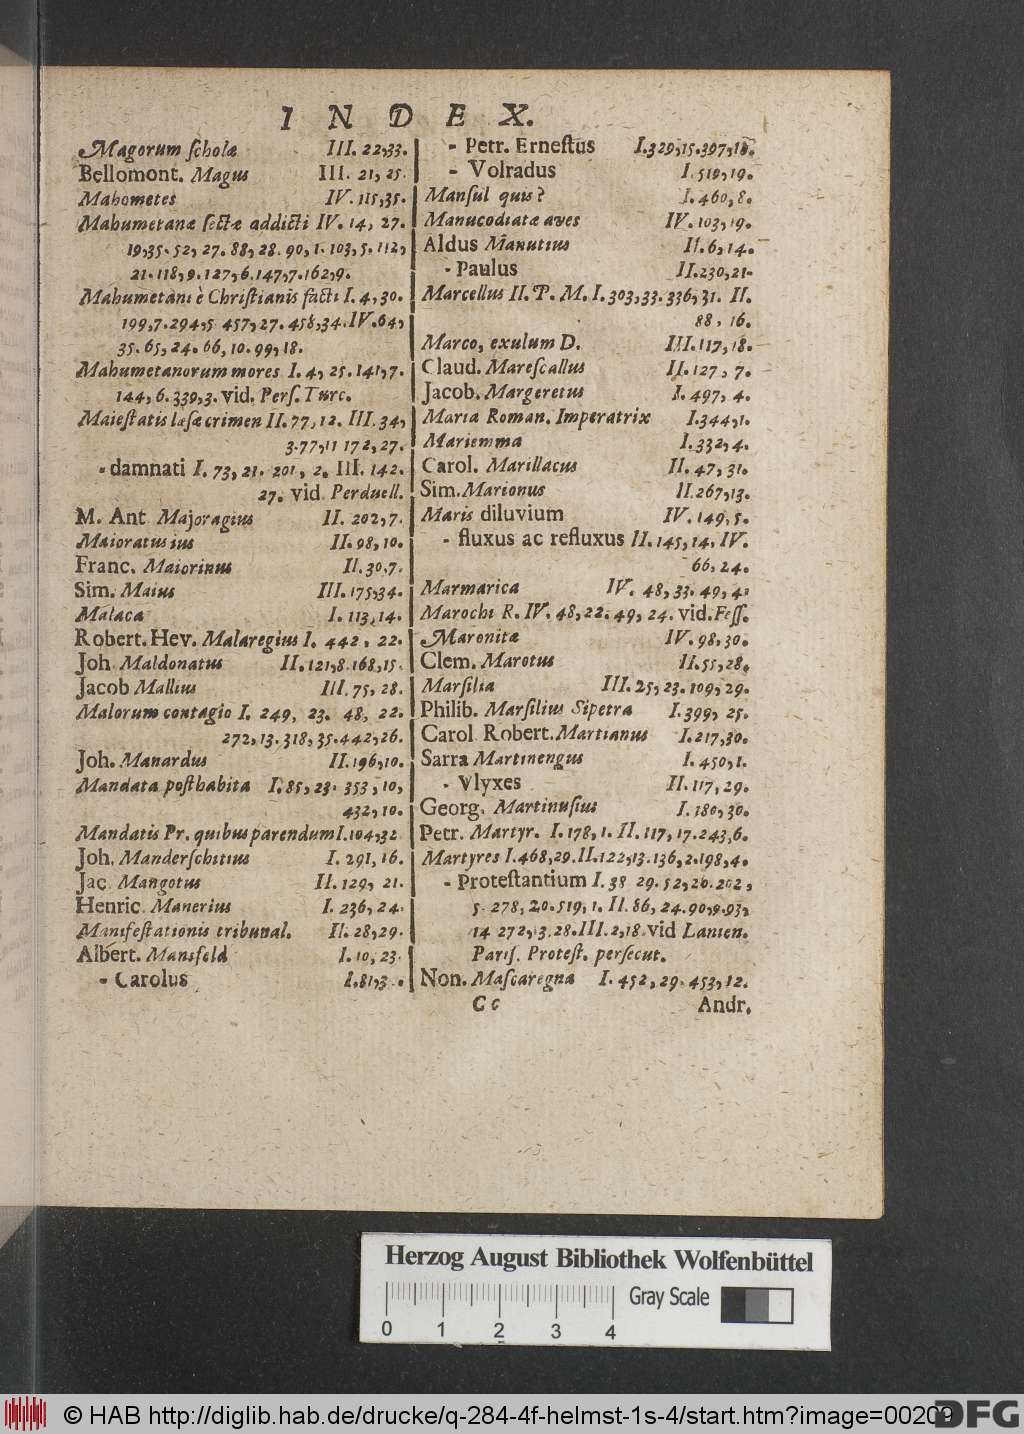 INDEX.
Magorum scholæ III. 22,33.
Bellomont. Magus III. 21, 25.
Mahometes IV. 115,35.
Mahumetanæ sectæ addicti IV. 14, 27.
19,35. 52, 27. 88, 28. 90, 1. 103, 5. 112,
21. 118, 9. 127, 6. 147, 7. 162, 9.
Mahumetani è Christianis facti I. 4, 30.
199, 7. 294, 5 457, 27. 458, 34. IV. 64,
35. 65, 24. 66, 10. 99, 18.
Mahumetanorum mores I. 4, 25. 141, 7.
144, 6. 339, 3. vid. Pers. Turc.
Maiestatis læsæ crimen II. 77, 12. III. 34,
3. 77, 11 172, 27.
- damnati I. 73, 21. 201, 2. III. 142.
27. vid Perduell.
M. Ant Majoragius II. 202, 7.
Maioratus ius II. 98, 10.
Franc. Maiorinus II. 30, 7.
Sim. Maius III. 175, 34.
Malaca I. 113, 14.
Robert. Hev. Malaregius I. 442, 22.
Joh Maldonatus II. 121, 8. 168, 15.
Jacob Mallius III. 75, 28.
Malorum contagio I. 249, 23. 48, 22.
272, 13. 318, 35. 442, 26.
Joh. Manardus II. 196, 10.
Mandata posthabita I. 85, 23. 353, 10,
432, 10.
Mandatis Pr. quibus parendum I. 104, 32
Joh. Manderschitius I. 291, 16.
Jac. Mangotus II. 129, 21.
Henric. Manerius I. 236, 24.
Manifestationis tribunal. II. 28, 29.
Albert. Mansfeld I. 10, 23.
- Carolus I. 81, 3.
- Petr. Ernestus I. 329, 15. 397, 18.
- Volradus I. 519, 19.
Mansul quis? I. 460, 8.
Manucodiatæ aves IV. 103, 19.
Aldus Manutius II. 6, 14.
- Paulus II. 230, 21.
Marcellus II. P. M. I. 303, 33. 336, 31. II.
88, 16.
Marco, exulum D. III. 117, 18.
Claud. Marescallus II. 127, 7.
Jacob. Margeretus I. 497, 4.
Maria Roman. Imperatrix I. 344, 1.
Mariemma I. 332, 4.
Carol. Marillacus II. 47, 31.
Sim. Marionus II. 267, 13.
Maris diluvium IV. 149, 5.
- fluxus ac refluxus II. 145, 14. IV.
66, 24.
Marmarica IV. 48, 33. 49, 4.
Marochi R. IV. 48, 22. 49, 24. vid. Fess.
Maronitæ IV. 98, 30.
Clem. Marotus II. 55, 28.
Marsilia III. 25, 23. 109, 29.
Philib. Marsilius Sipetra I. 399, 25.
Carol Robert. Martianus I. 217, 30.
Sarra Martinengus I. 450, 1.
- Vlyxes II. 117, 29.
Georg. Martinusius I. 180, 30.
Petr. Martyr. I. 178, 1. II. 117, 17. 243, 6.
Martyres I. 468, 29. II. 122, 13. 136, 2. 198, 4.
- Protestantium I. 38 29. 52, 20. 202,
5. 278, 20. 519, 1. II. 86, 24. 90, 9. 93,
14 272, 13. 28. III. 2, 18. vid Lanien.
Paris. Protest. persecut.
Non. Mascaregna I. 452, 29. 453, 12.
Cc Andr.
Herzog August Bibliothek Wolfenbüttel
Gray Scale
0 1 2 3 4
© HAB http://diglib.hab.de/drucke/q-284-4f-helmst-1s-4/start.htm?image=00209
DFG